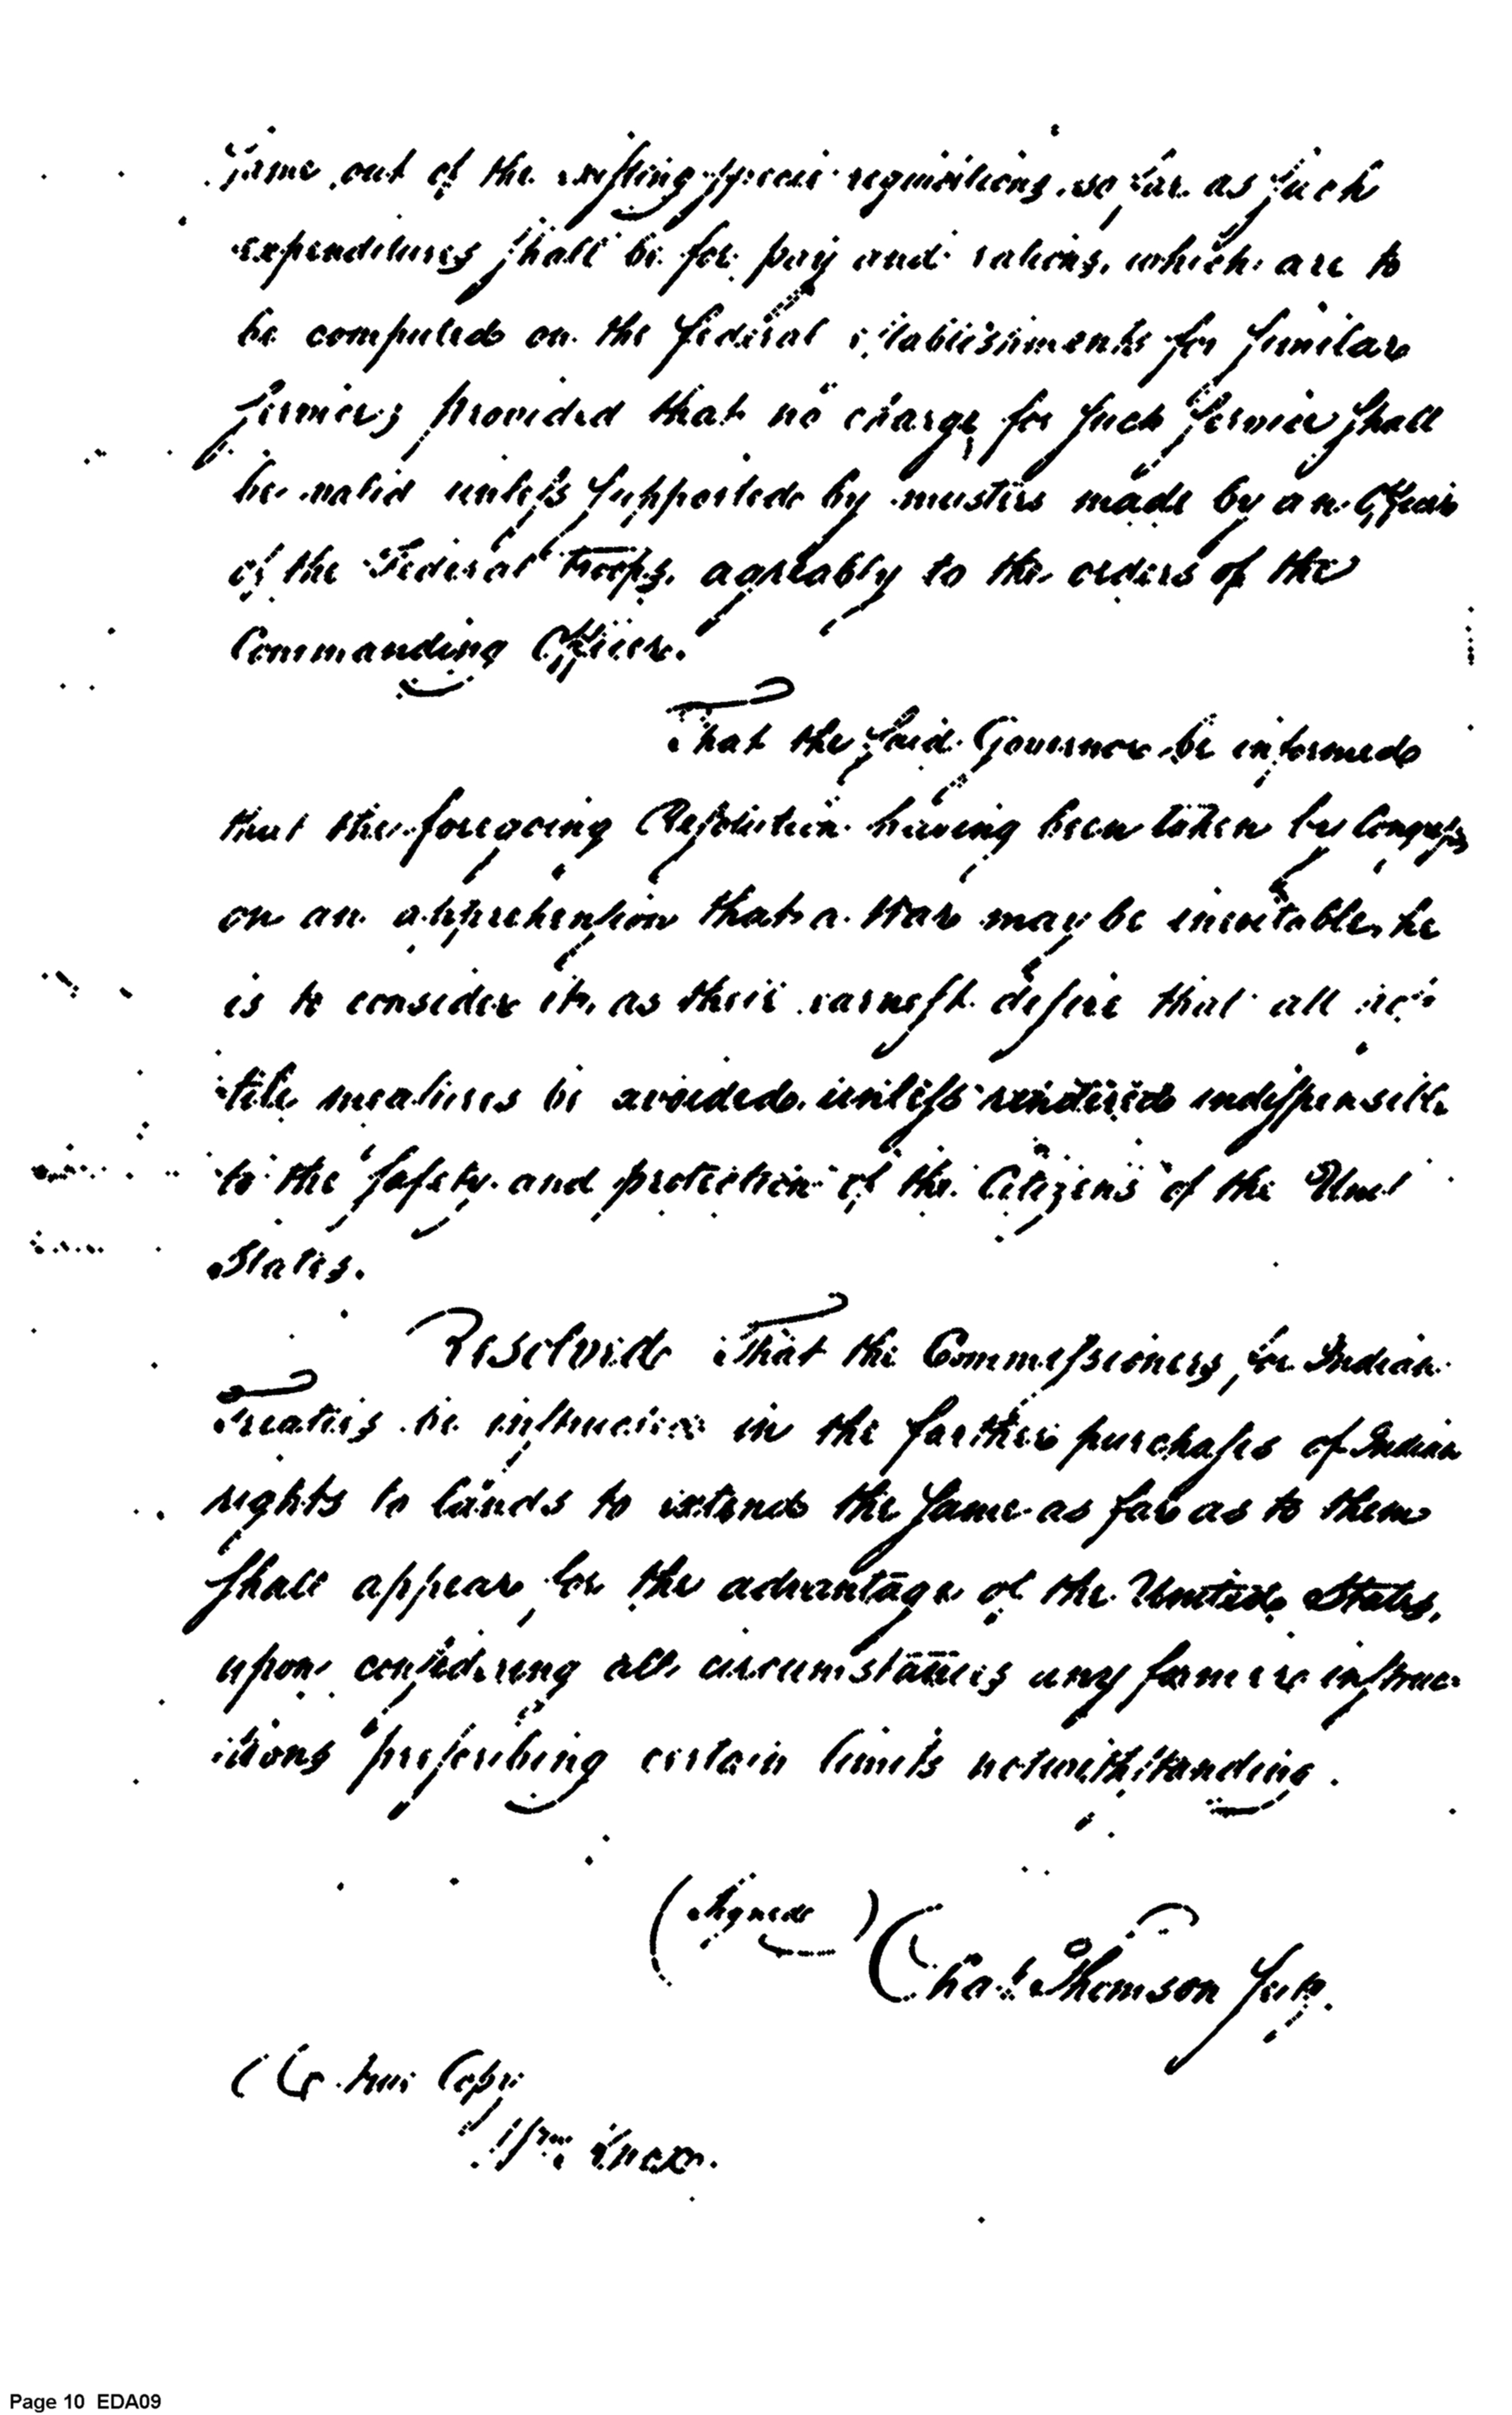 same out of the existing specie requisitions, so far as such
expenditures shall be for pay and rations, which are to
be computed on the federal establishments for similar
services; provided that no charge for such service shall
be valid unless supported by musters made by an Officer
of the Federal Troops, agreably to the orders of the
Commanding Officer.
That the said Governor be informed
that the foregoing Resolution having been taken by Congress
on an apprehension that a War may be inevitable, he
is to consider it, as their earnest desire that all hos
tile measures be avoided unless rendered indispensible
to the safety and protection of the Citizens of the
States.
Resolved That the Commissioners for Indian
Treaties be instructed in the farther purchases of Indian
rights to lands to extend the same as far as to them
shall appear for the advantage of the United States,
upon considering all circumstances any former instruc
tions prescribing certain limits notwithstanding.
(signed) Chas Thomson Secy.
true Copy
Wm Knox.
Page 10 EDA09